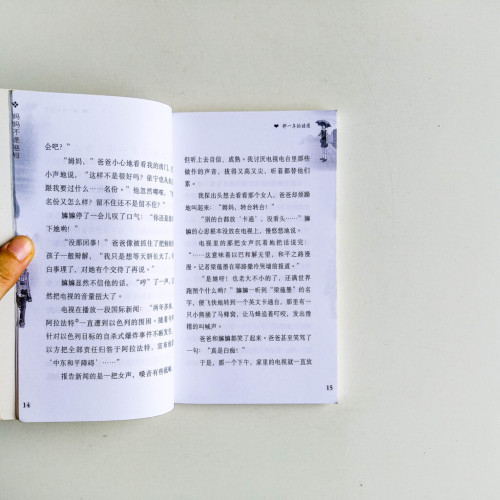 妈妈不是恶姐
会吧？”
“姆妈，”爸爸小心地看看我的房门，
小声地说，“这样不是很好吗？依宁也
跟我要过什么……名份。”他忽然嘟哝，“
名份又怎么样？留不住还不是留不住？”
嫲嫲停了一会儿叹了口气：“你还是放
下她哟！”
“没那回事！”爸爸像被抓住了把柄般
孩子一般辩解，“我只是想等天骄长大了，
白事理了，对她有个交待了再说。”
嫲嫲显然不信他的话，“哼”了一声，
然把电视的音量扭大了。
电视在播放一段国际新闻：“两年多来，
阿拉法特一直遭到以色列的围困。随着今年
针对以色列目标的自杀式爆炸事件不断发生，
以方把全部责任归咎于阿拉法特，宣布他是
‘中东和平障碍’……”
报告新闻的是一把女声，嗓音有些低哑，
14
那一年的结局
但听上去自信、成熟。我讨厌电视电台里那些
做作的声音，拔得又高又尖，听着都替他们
累。
我探出头想去看看那个女人，爸爸却烦躁
地叫起来：“姆妈，转台转台！”
“别的台都放‘卡通’，没看头……”嫲嫲
的心思根本没放在电视上，慢悠悠地说。
电视里的那把女声沉着地把话说完：
“……这意味着以巴和解无望，和平之路漫
漫。记者梁蕴墨在耶路撒冷哭墙前报道。”
“是她呀！也老大不小的了，还满世界
跑图个什么哟？”嫲嫲一听到“梁蕴墨”的名
字，便飞快地转到一个英文卡通台，那里有一
只小熊捅了马蜂窝，让马蜂追着叮咬，发出滑
稽的叫喊声。
爸爸和嫲嫲都笑了起来。爸爸甚至笑骂了
一句：“真是白痴！”
于是，那一个下午，家里的电视就一直放
15